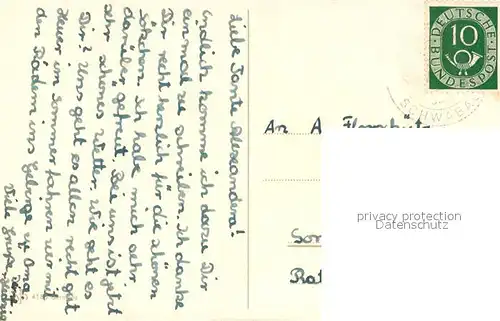 Liebe Tante Alexandra!
Endlich komme ich dazu Dir
einmal zu schreiben. Ich danke
Dir recht herzlich für die schönen
Söckchen. Ich habe mich sehr
darüber gefreut. Bei uns ist jetzt
sehr schönes Wetter. Wie geht es
Dir? Uns geht es allen recht gut
Heuer im Sommer fahren wir mit
den Rädern ins Gebirge zu Oma
Viele Grüße
DEUTSCHE
BUNDESPOST
10
SCHWABA
An
privacy protection
Datenschutz
Son
Rat